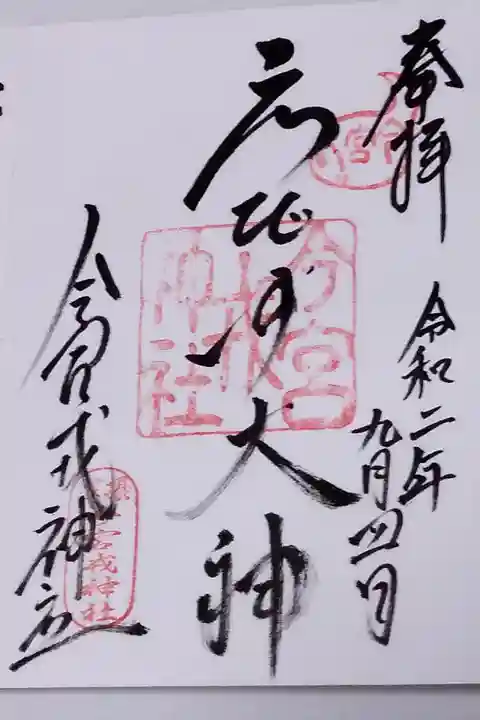 奉拝
令和二年
九月四日
大神
今宮戎神社
今宮
戎
神社
宮戎神社